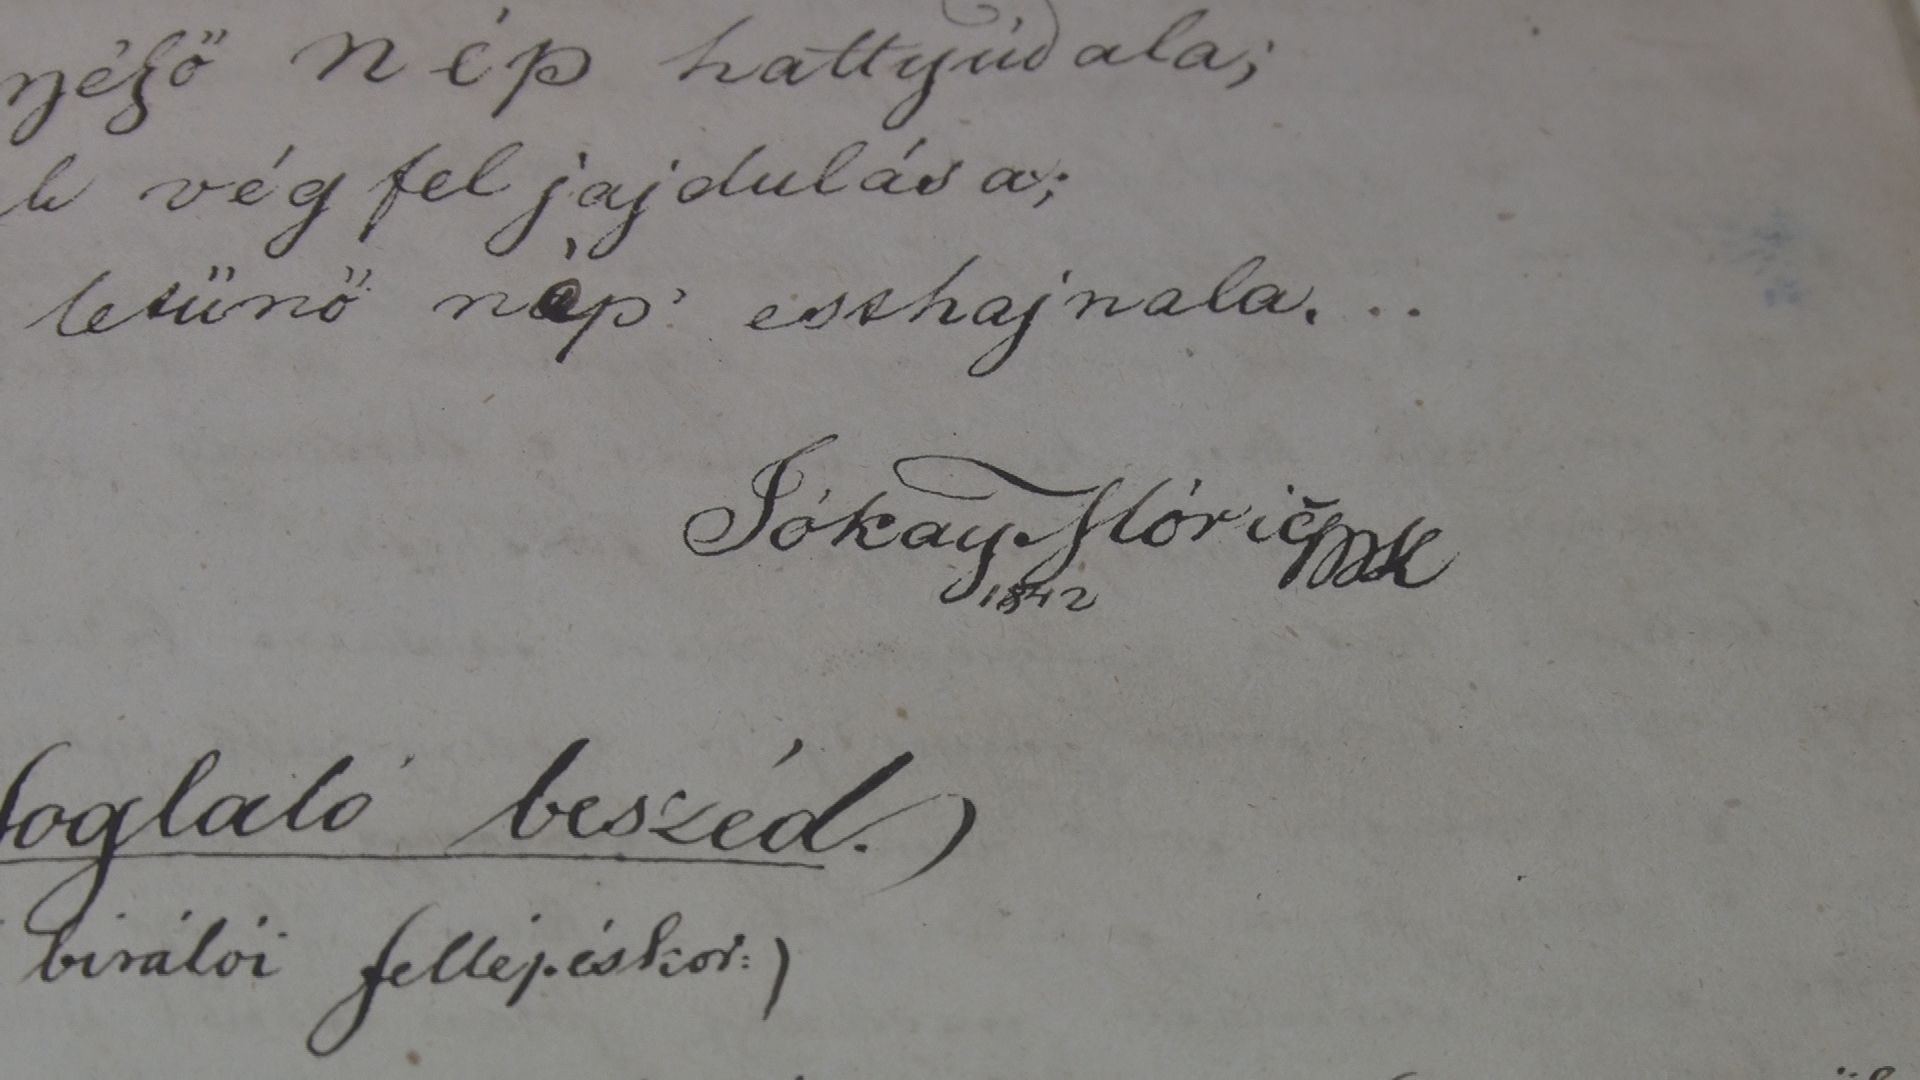 nyésző nép hattyúdala;
k végfeljajdulása;
letünő nép' esthajnala...
Jókay Móric mk
1842
foglaló beszéd.)
birálói felléptéskor:)